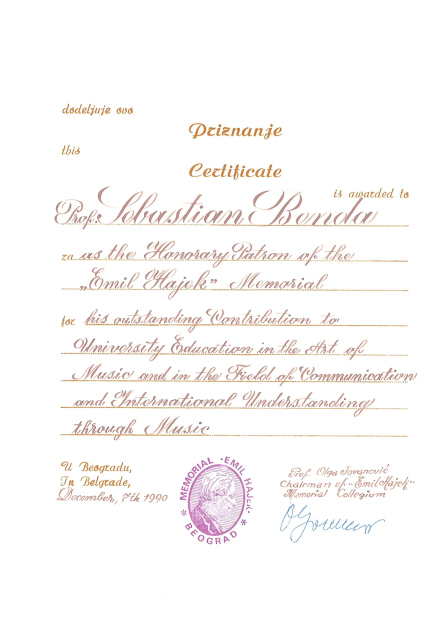 dodeljuje ovo
Priznanje
this
Certificate
is awarded to
Prof. Sebastian Benda
za as the Honorary Patron of the
„Emil Hajek” Memorial
for his outstanding Contribution to
University Education in the Art of
Music and in the Field of Communication
and International Understanding
through Music
U Beogradu,
In Belgrade,
December, 7th 1990
MEMORIAL · EMIL HAJEK ·
* BEOGRAD *
Prof. Olga Jovanović
Chairman of „Emil Hajek”
Memorial Collegium